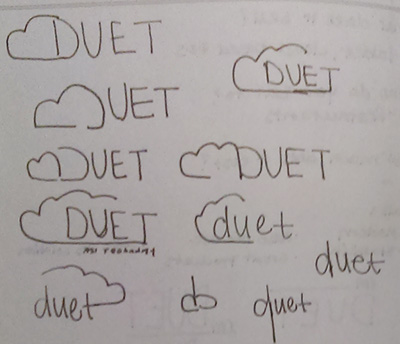 DUET
DUET
DUET
DUET
DUET
DUET
duet
duet
duet
duet